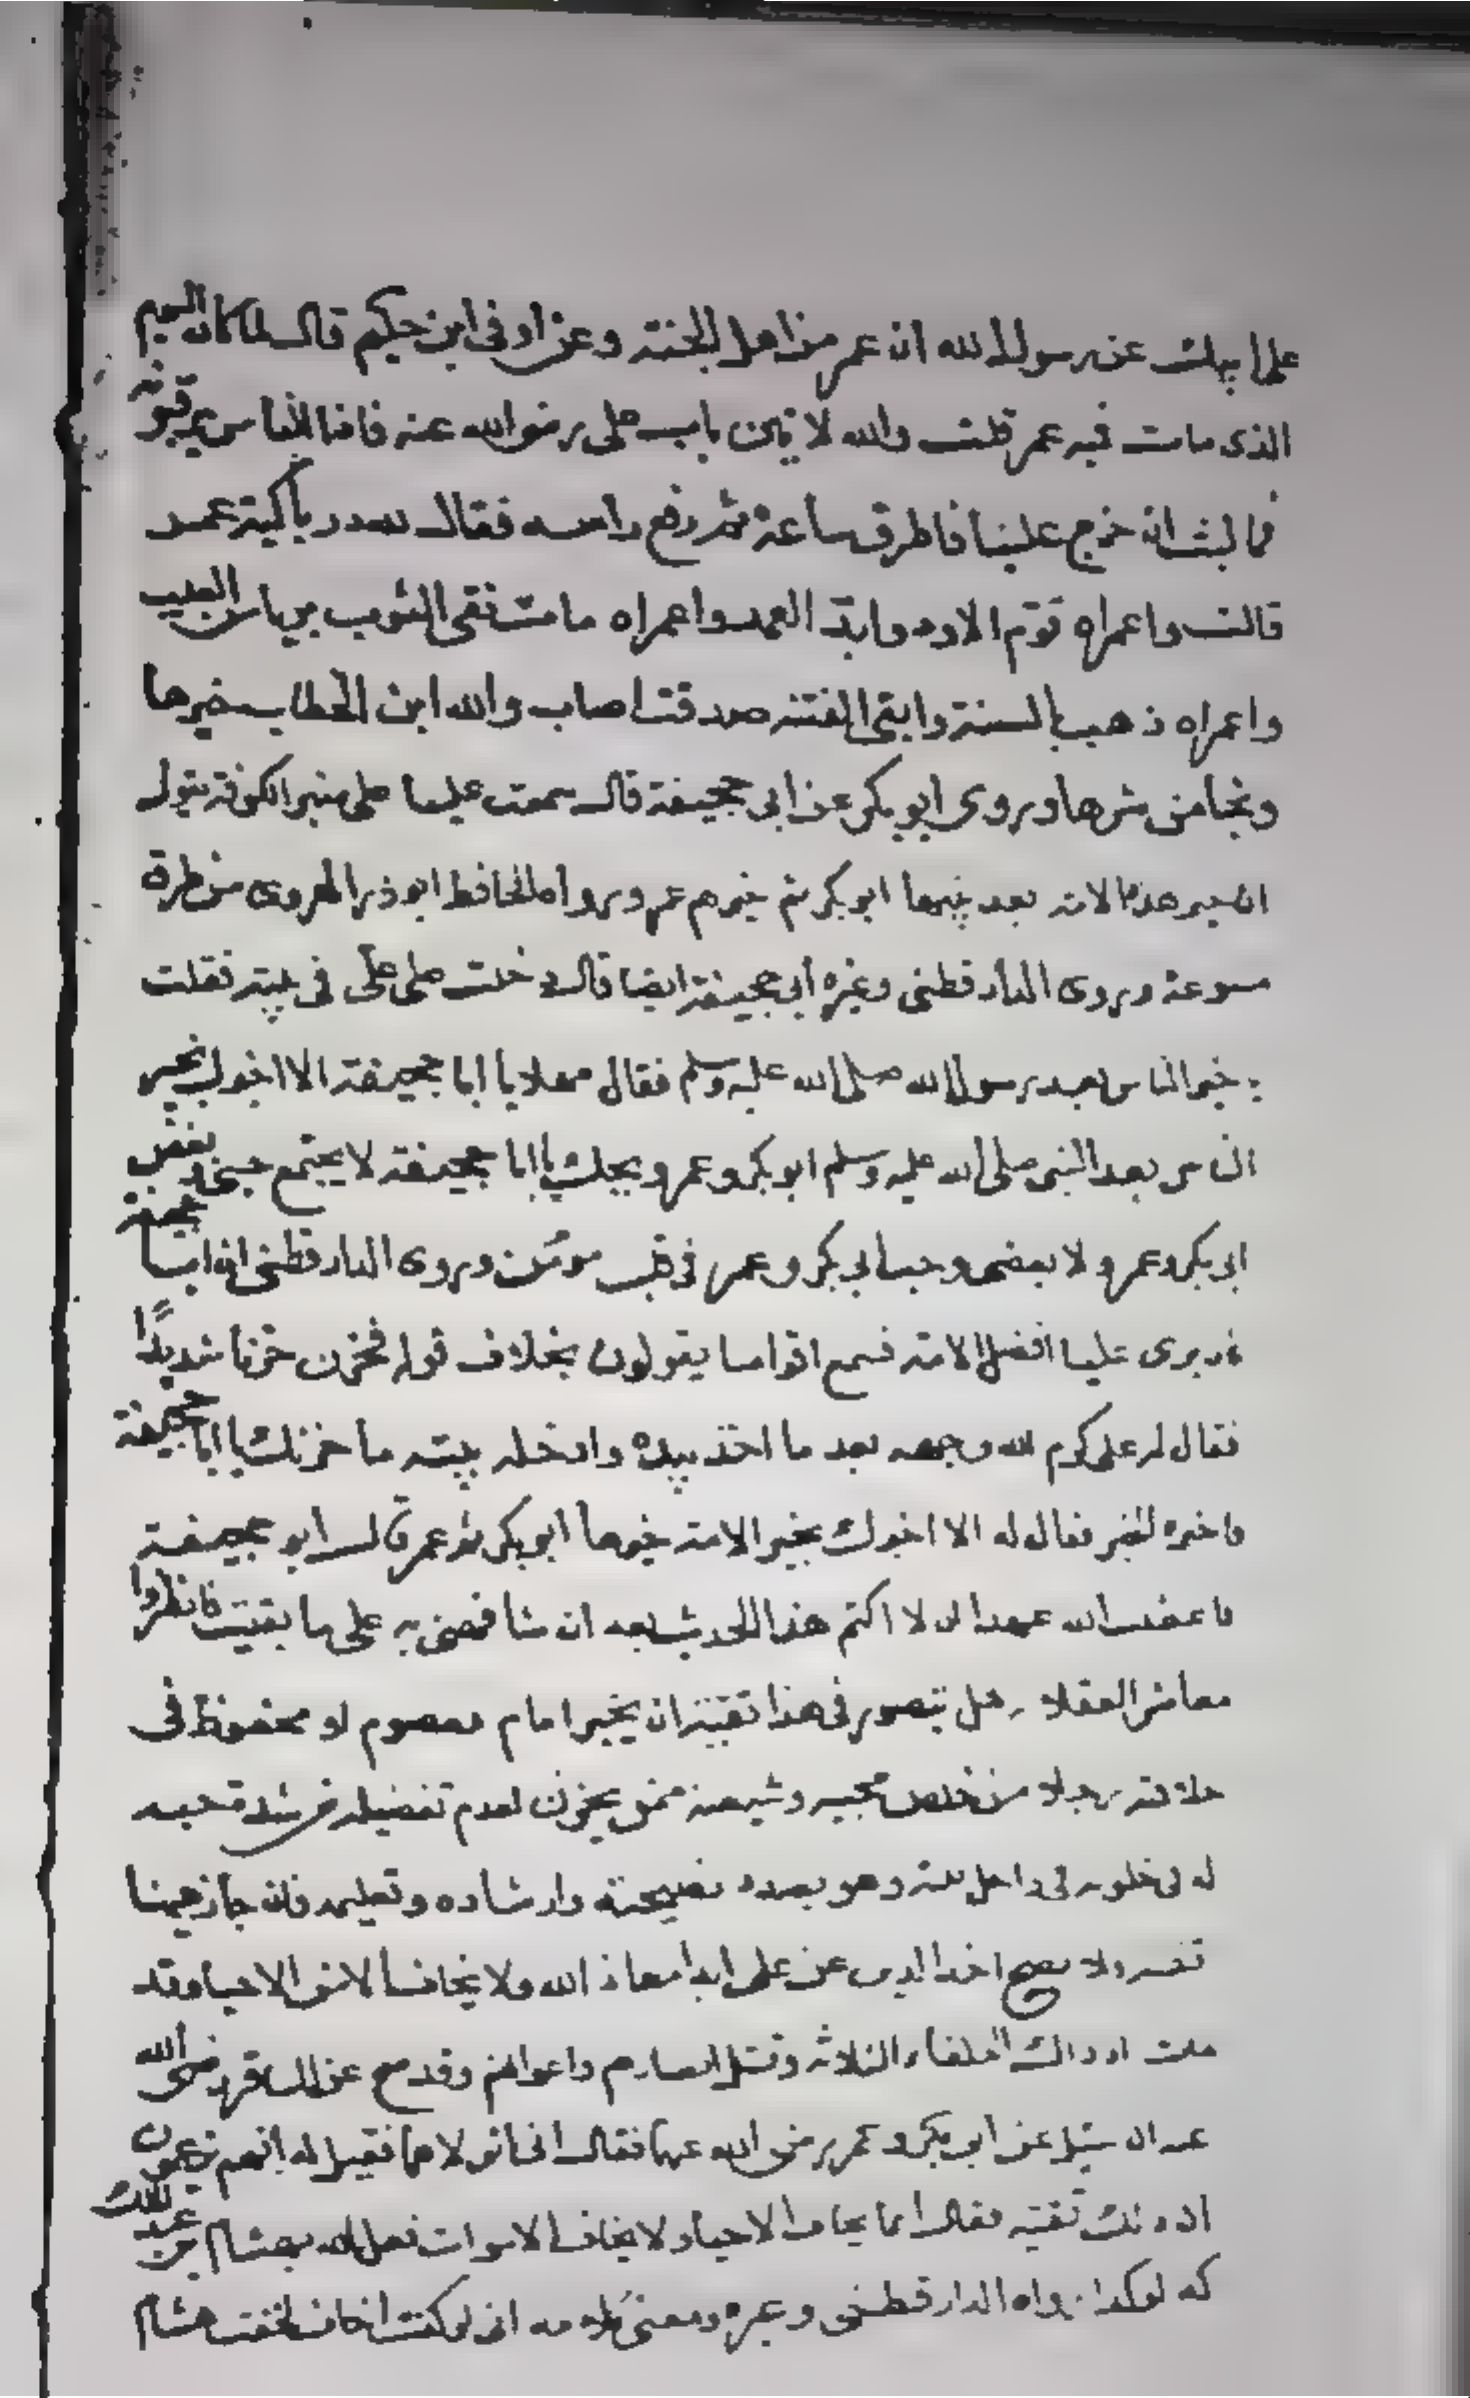 على ابيك عن رسول الله ان عمر من اهل الجنة وعن اوفى ابن حكيم قال لما كان اليوم
الذي مات فيه عمر قلت والله لاتين باب على رضى الله عنه فاذا الناس يرقبونه
فما لبث ان خرج علينا فاطرق ساعة ثم رفع راسه فقال لله در باكية عمر
قالت واعمراه قوم الاود وابد العمد واعمراه مات نقى الثوب العيب
واعمراه ذهب بالسنة وابقى الفتنه صدقت اصاب والله ابن الخطاب خيرها
ونجا من شرها وروى ابو بكر عن ابى جحيفة قال سمعت عليا على منبر الكوفة يقول
ان خير هذه الامة بعد نبيها ابو بكر ثم خيرهم عمر ورواه الحافظ ابو ذر الهروى من طرق
متنوعة وروى الدارقطنى وغيره ابى جحيفة ايضا قال دخلت على على فى بيته فقلت
يا خير الناس بعد رسول الله صلى الله عليه وسلم فقال مهلا يا ابا جحيفة الا اخبرك بخير
الناس بعد النبى صلى الله عليه وسلم ابو بكر وعمر ويحك يا ابا جحيفة لا يجتمع حبى وبغض
ابى بكر وعمر ولا بغضى وحب ابى بكر وعمر فى قلب مومن وروى الدارقطنى ان ابا جحيفة
كان يرى عليا افضل الامة فسمع اقواما يقولون بخلاف قوله فحزن حزنا شديدًا
فقال له على كرم الله وجهه بعد ما اخذ بيده وادخله بيته ما حزنك يا ابا جحيفة
فاخبره الخبر فقال له الا اخبرك بخير الامة خيرها ابو بكر ثم عمر قال ابو جحيفة
فاعطيت الله عهدا ان لا اكتم هذا الحديث بعد ان شافهنى به على ما بقيت فانظروا
معاشر العقلاء هل يتصور فى هذا تقية ان يخبر امام معصوم او محفوظ فى
خلافته رجلا من خلص محبيه وشيعته ممن يحزن لعدم تفضيله من شدة حبه
له فى خلوته فى داخل بيته وهو بصدد نصيحته وارشاده وتعليمه فان جاز هيهنا
تقيه ولا يصح اخذ الدين عن على ابدا معاذ الله ولا يخاف الا من الاحيا وقد
مات اذ ذاك الخلفاء الثلاثة وقتل انصارهم واعوانهم وقد صح عن الباقر رضى الله
عنه ان سئل عن ابو بكر وعمر رضى الله عنهما فقال انى اتولاهما فقيل له انهم يزعمون
ان ذلك تقية فقال انما يخاف الاحياء ولا يخاف الاموات فعل الله بهشام بن عبد الملك
كذا وكذا رواه الدارقطنى وغيره ومعنى كلامه انى لو كنت اخاف لخفت هشام